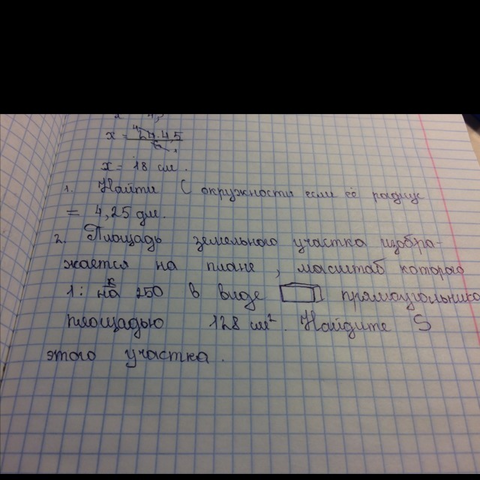 x = 24·45
x = 18 см.
1. Найти C окружности если её радиус
= 4,25 дм.
2. Площадь земельного участка изобра-
жается на плане, масштаб которого
1: на 250 в виде прямоугольника
площадью 128 см². Найдите S
этого участка.